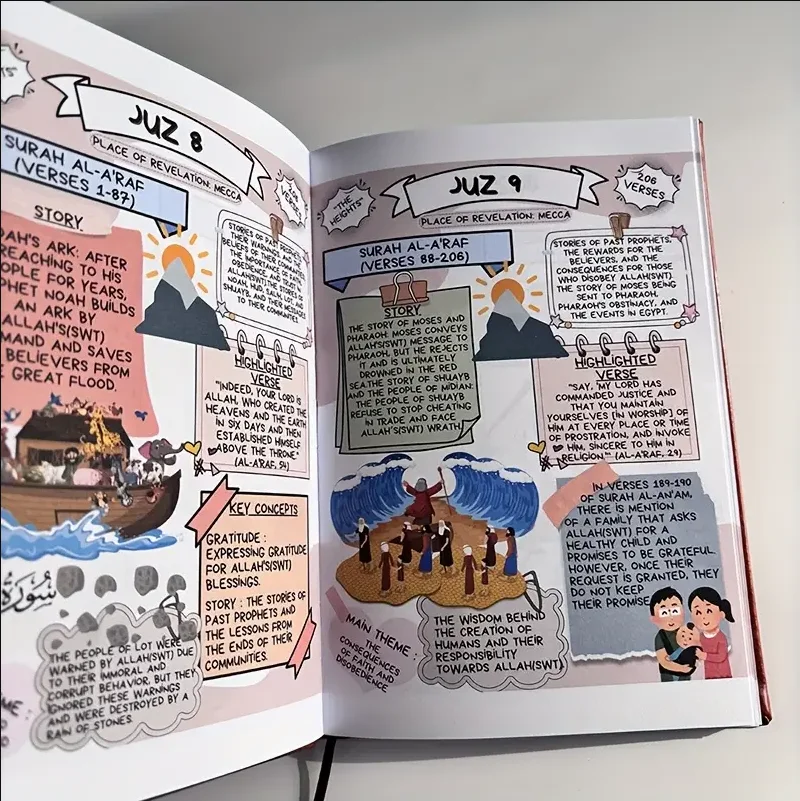 JUZ 8
PLACE OF REVELATION: MECCA
SURAH AL-A'RAF
(VERSES 1-87)
VERSES
STORY
ARK: AFTER
TO HIS
FOR YEARS,
NOAH BUILDS
AN ARK BY
ALLAH'S(SWT)
AND SAVES
BELIEVERS FROM
GREAT FLOOD.
STORIES OF PAST PROPHETS,
THEIR WARNINGS, AND THE
BELIEFS OF THEIR COMMUNITIES.
THE IMPORTANCE OF FAITH,
OBEDIENCE, AND TRUST IN
ALLAH(SWT). THE STORIES OF
NOAH, HUD, SALIH, LOT, AND
SHUAYB, AND THEIR MESSAGES
TO THEIR COMMUNITIES.
HIGHLIGHTED
VERSE
"INDEED, YOUR LORD IS
ALLAH, WHO CREATED THE
HEAVENS AND THE EARTH
IN SIX DAYS AND THEN
ESTABLISHED HIMSELF
ABOVE THE THRONE"
(AL-A'RAF, 54)
KEY CONCEPTS
GRATITUDE :
EXPRESSING GRATITUDE
FOR ALLAH'S(SWT)
BLESSINGS.
STORY : THE STORIES OF
PAST PROPHETS AND
THE LESSONS FROM
THE ENDS OF THEIR
COMMUNITIES.
سورة
THE PEOPLE OF LOT WERE
WARNED BY ALLAH(SWT) DUE
TO THEIR IMMORAL AND
CORRUPT BEHAVIOR, BUT THEY
IGNORED THESE WARNINGS
AND WERE DESTROYED BY A
RAIN OF STONES.
JUZ 9
"THE
HEIGHTS"
206
VERSES
PLACE OF REVELATION: MECCA
SURAH AL-A'RAF
(VERSES 88-206)
STORY
THE STORY OF MOSES AND
PHARAOH: MOSES CONVEYS
ALLAH'S(SWT) MESSAGE TO
PHARAOH, BUT HE REJECTS
IT AND IS ULTIMATELY
DROWNED IN THE RED
SEA.THE STORY OF SHUAYB
AND THE PEOPLE OF MIDIAN:
THE PEOPLE OF SHUAYB
REFUSE TO STOP CHEATING
IN TRADE AND FACE
ALLAH'S(SWT) WRATH.
STORIES OF PAST PROPHETS,
THE REWARDS FOR THE
BELIEVERS, AND THE
CONSEQUENCES FOR THOSE
WHO DISOBEY ALLAH(SWT).
THE STORY OF MOSES BEING
SENT TO PHARAOH,
PHARAOH'S OBSTINACY, AND
THE EVENTS IN EGYPT.
HIGHLIGHTED
VERSE
"SAY, 'MY LORD HAS
COMMANDED JUSTICE AND
THAT YOU MAINTAIN
YOURSELVES [IN WORSHIP] OF
HIM AT EVERY PLACE OR TIME
OF PROSTRATION, AND INVOKE
HIM, SINCERE TO HIM IN
RELIGION.'" (AL-A'RAF, 29)
IN VERSES 189-190
OF SURAH AL-AN'AM,
THERE IS MENTION
OF A FAMILY THAT ASKS
ALLAH(SWT) FOR A
HEALTHY CHILD AND
PROMISES TO BE GRATEFUL.
HOWEVER, ONCE THEIR
REQUEST IS GRANTED, THEY
DO NOT KEEP
THEIR PROMISE.
MAIN THEME : THE
CONSEQUENCES
OF FAITH AND
DISOBEDIENCE
THE WISDOM BEHIND
THE CREATION OF
HUMANS AND THEIR
RESPONSIBILITY
TOWARDS ALLAH(SWT)